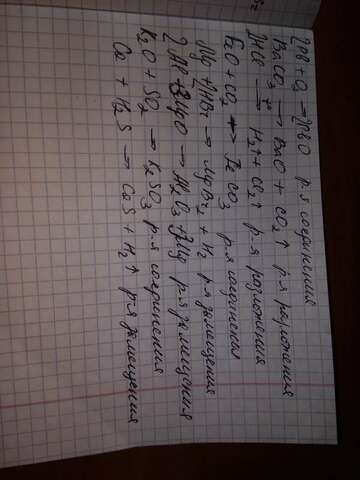 2PB + O₂ → 2PBO р-я соединения
BaCO₃ →ᵗ BaO + CO₂↑ р-я разложения
2HCl → H₂↑ + Cl₂↑ р-я разложения
FeO + CO₂ ↔ FeCO₃ р-я соединения
Mg + 2HBr → MgBr₂ + H₂ р-я замещения
2Al + 3MgO → Al₂O₃ + 3Mg р-я замещения
K₂O + SO₂ → K₂SO₃ р-я соединения
Ca + H₂S → CaS + H₂↑ р-я замещения